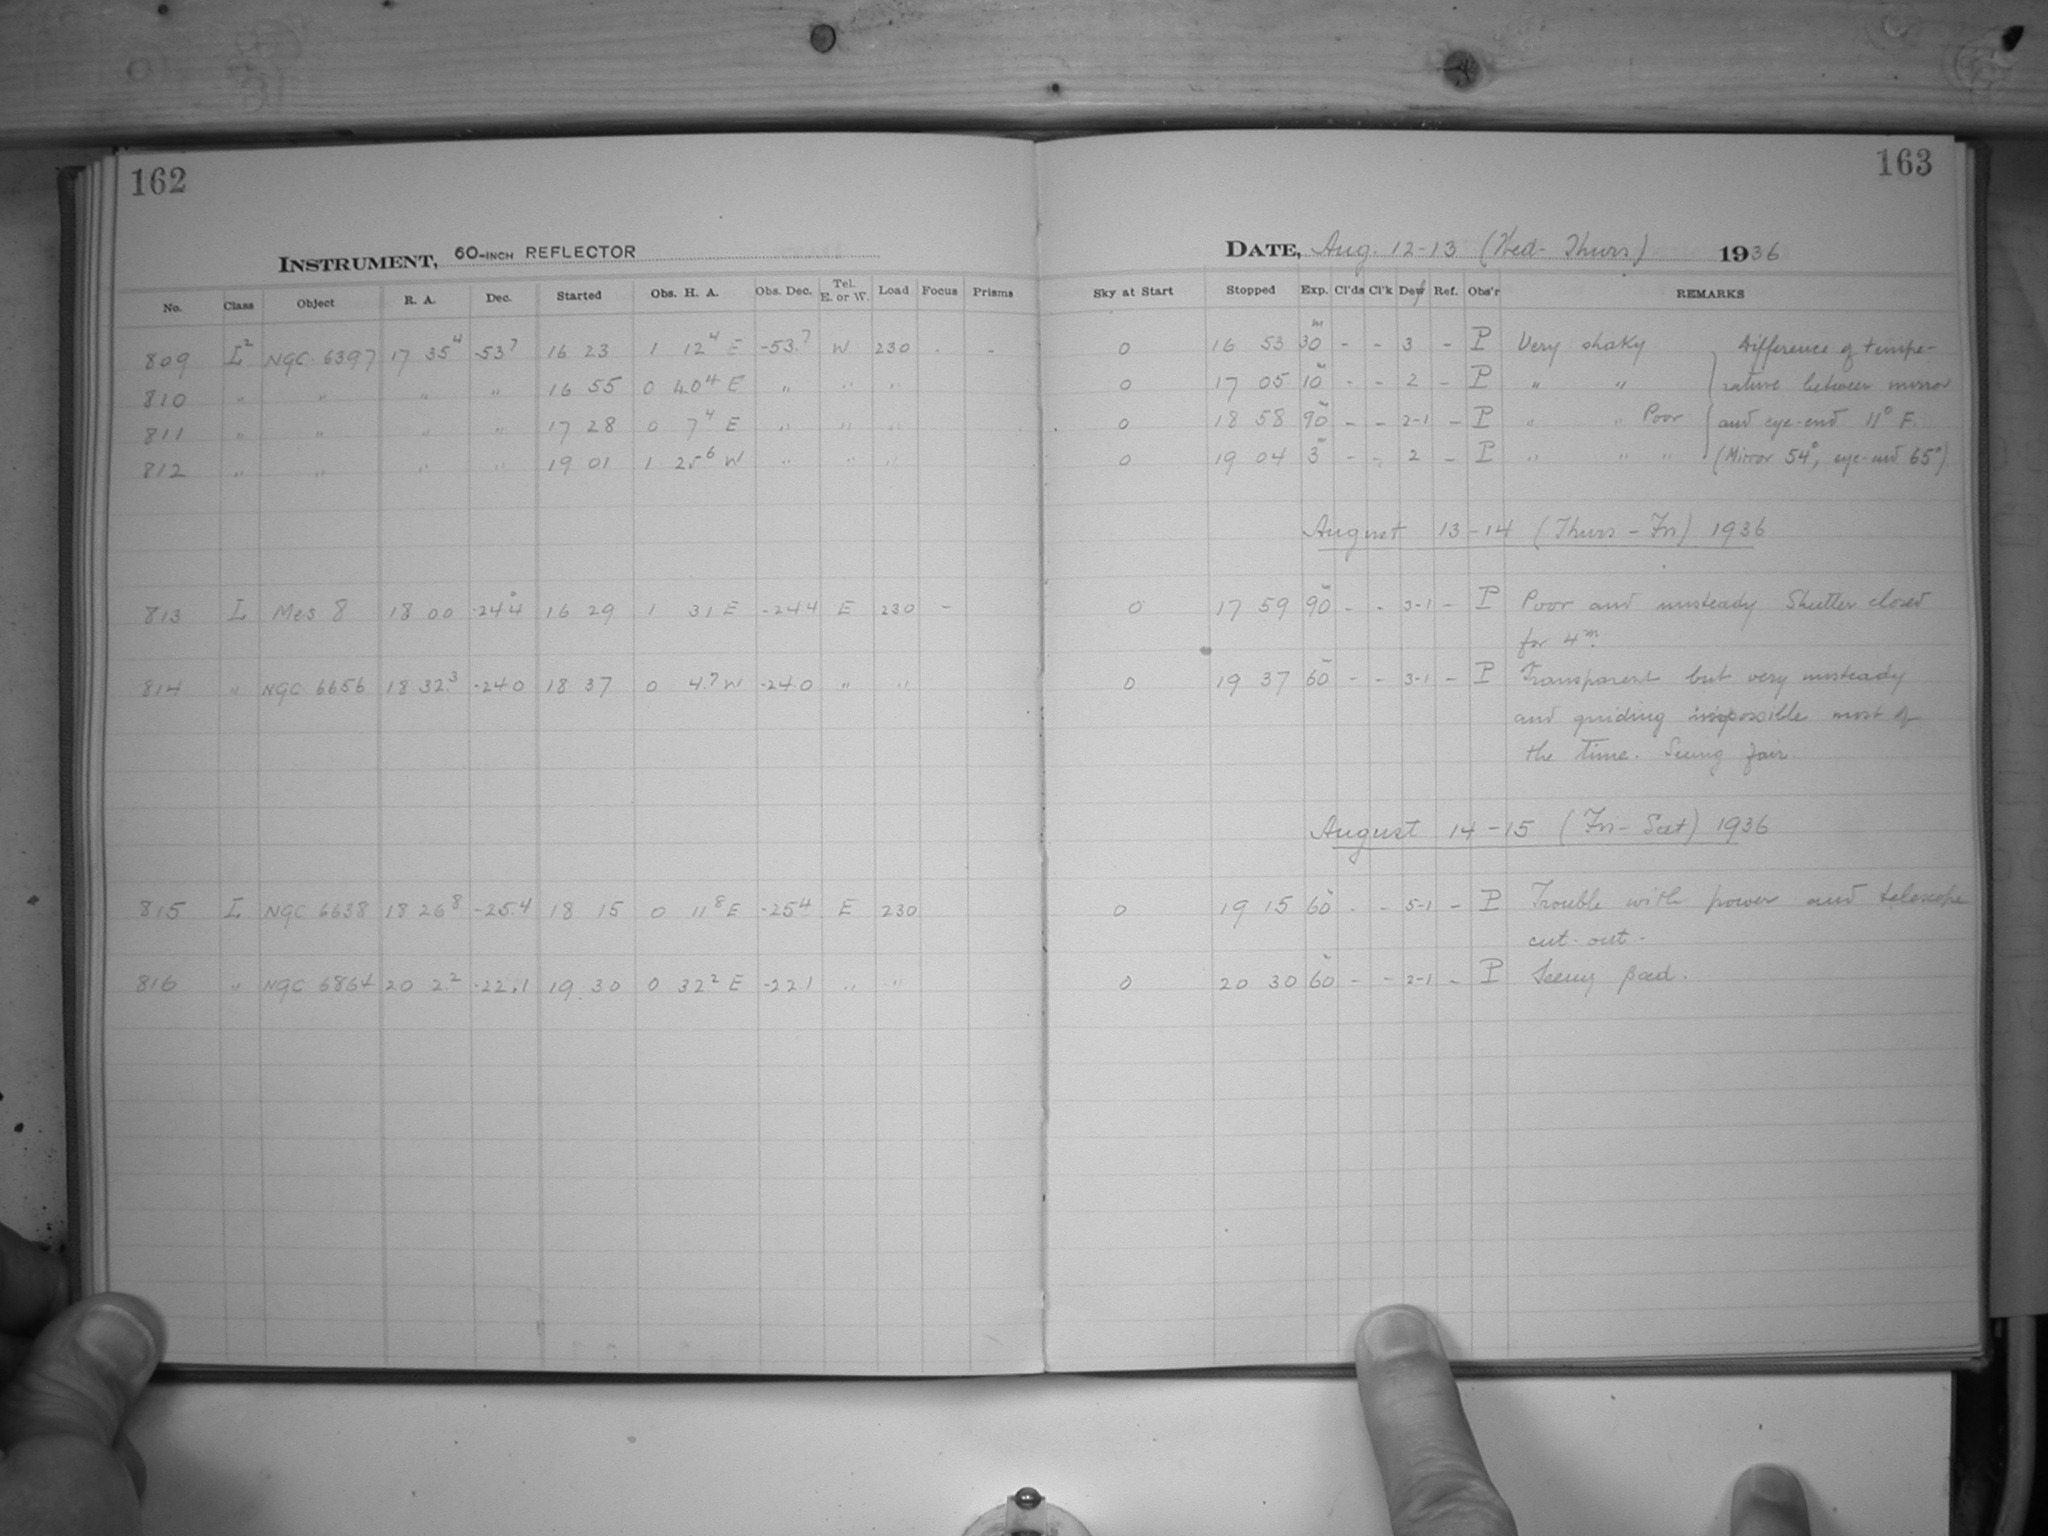 162
INSTRUMENT, 60-INCH REFLECTOR
No. Class Object R. A. Dec. Started Obs. H. A. Obs. Dec. Tel. E. or W. Load Focus Prisms
809 L² NGC 6397 17 35⁴ -53⁷ 16 23 1 12⁴ E -53.⁷ W 230 - -
810 " " " " 16 55 0 40⁴ E " " "
811 " " " " 17 28 0 7⁴ E " " "
812 " " " " 19 01 1 25⁶ W " " "
813 L Mes 8 18 00 -24°.4 16 29 1 31 E -24.4 E 230 -
814 " NGC 6656 18 32.³ -24.0 18 37 0 4.⁷ W -24.0 " "
815 L NGC 6638 18 26⁸ -25.4 18 15 0 11⁸ E -25⁴ E 230
816 " NGC 6864 20 2.² -22.1 19 30 0 32² E -22.1 " "
163
DATE, Aug. 12-13 (Wed-Thurs) 1936
Sky at Start Stopped Exp. Cl'ds Cl'k Dew Ref. Obs'r REMARKS
0 16 53 30ᵐ - - 3 - P Very shaky Difference of tempe-
0 17 05 10ᵐ - - 2 - P " " rature between mirror
0 18 58 90ᵐ - - 2-1 - P " " Poor and eye-end 11° F.
0 19 04 3ᵐ - - 2 - P " " " (Mirror 54°, eye-end 65°)
August 13-14 (Thurs-Fri) 1936
0 17 59 90ᵐ - - 3-1 - P Poor and unsteady Shutter closed
for 4ᵐ.
0 19 37 60ᵐ - - 3-1 - P Transparent but very unsteady
and guiding impossible most of
the time. Seeing fair.
August 14-15 (Fri-Sat) 1936
0 19 15 60ᵐ - - 5-1 - P Trouble with power and telescope
cut-out-
0 20 30 60ᵐ - - 2-1 - P Seeing bad.